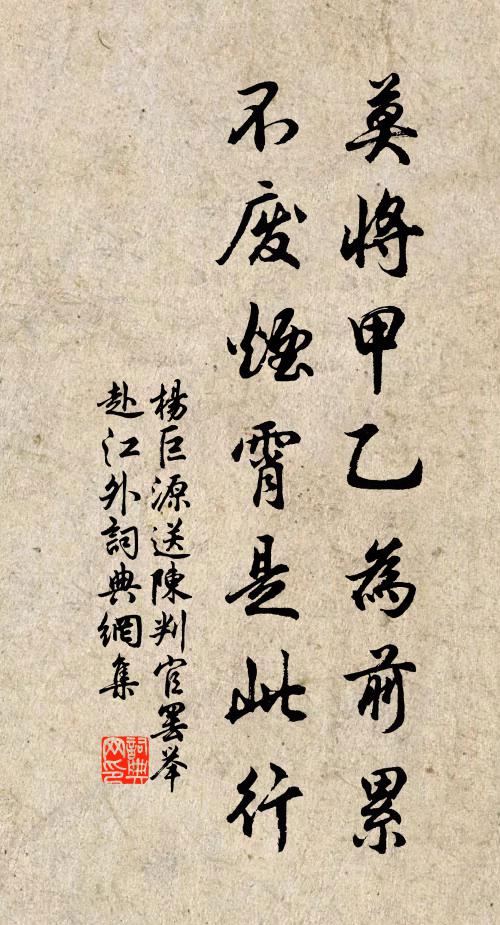 莫將甲乙為前累
不廢煙霄是此行
楊巨源送陳判官罷舉
赴江外詞典網集
詞典網印